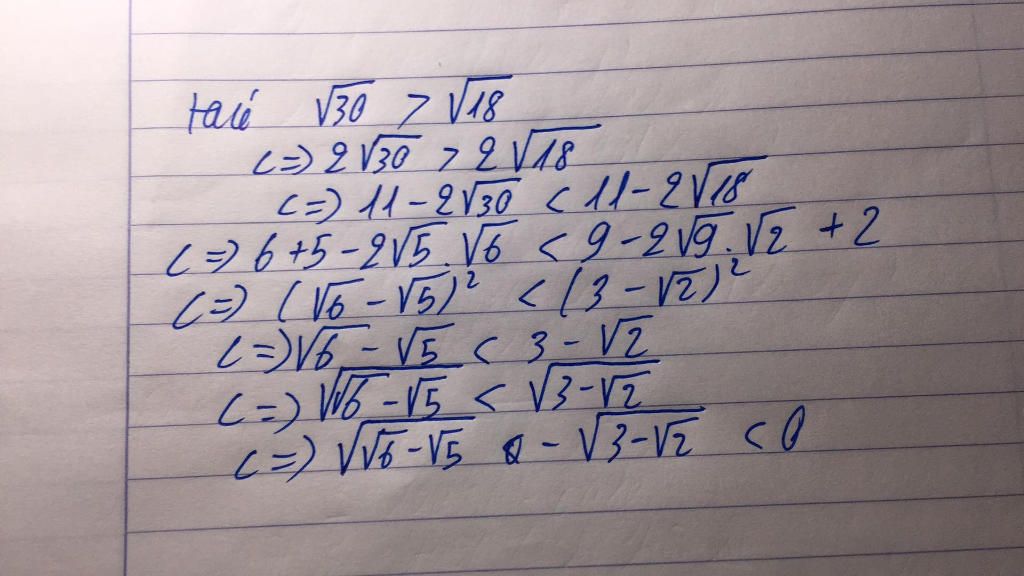 √30 > √18
<=> 2√30 > 2√18
<=> 11 - 2√30 < 11 - 2√18
<=> 6 + 5 - 2√5.√6 < 9 - 2√9.√2 + 2
<=> (√6 - √5)² < (3 - √2)²
<=> √6 - √5 < 3 - √2
<=> √(√6 - √5) < √(3 - √2)
<=> √(√6 - √5) - √(3 - √2) < 0